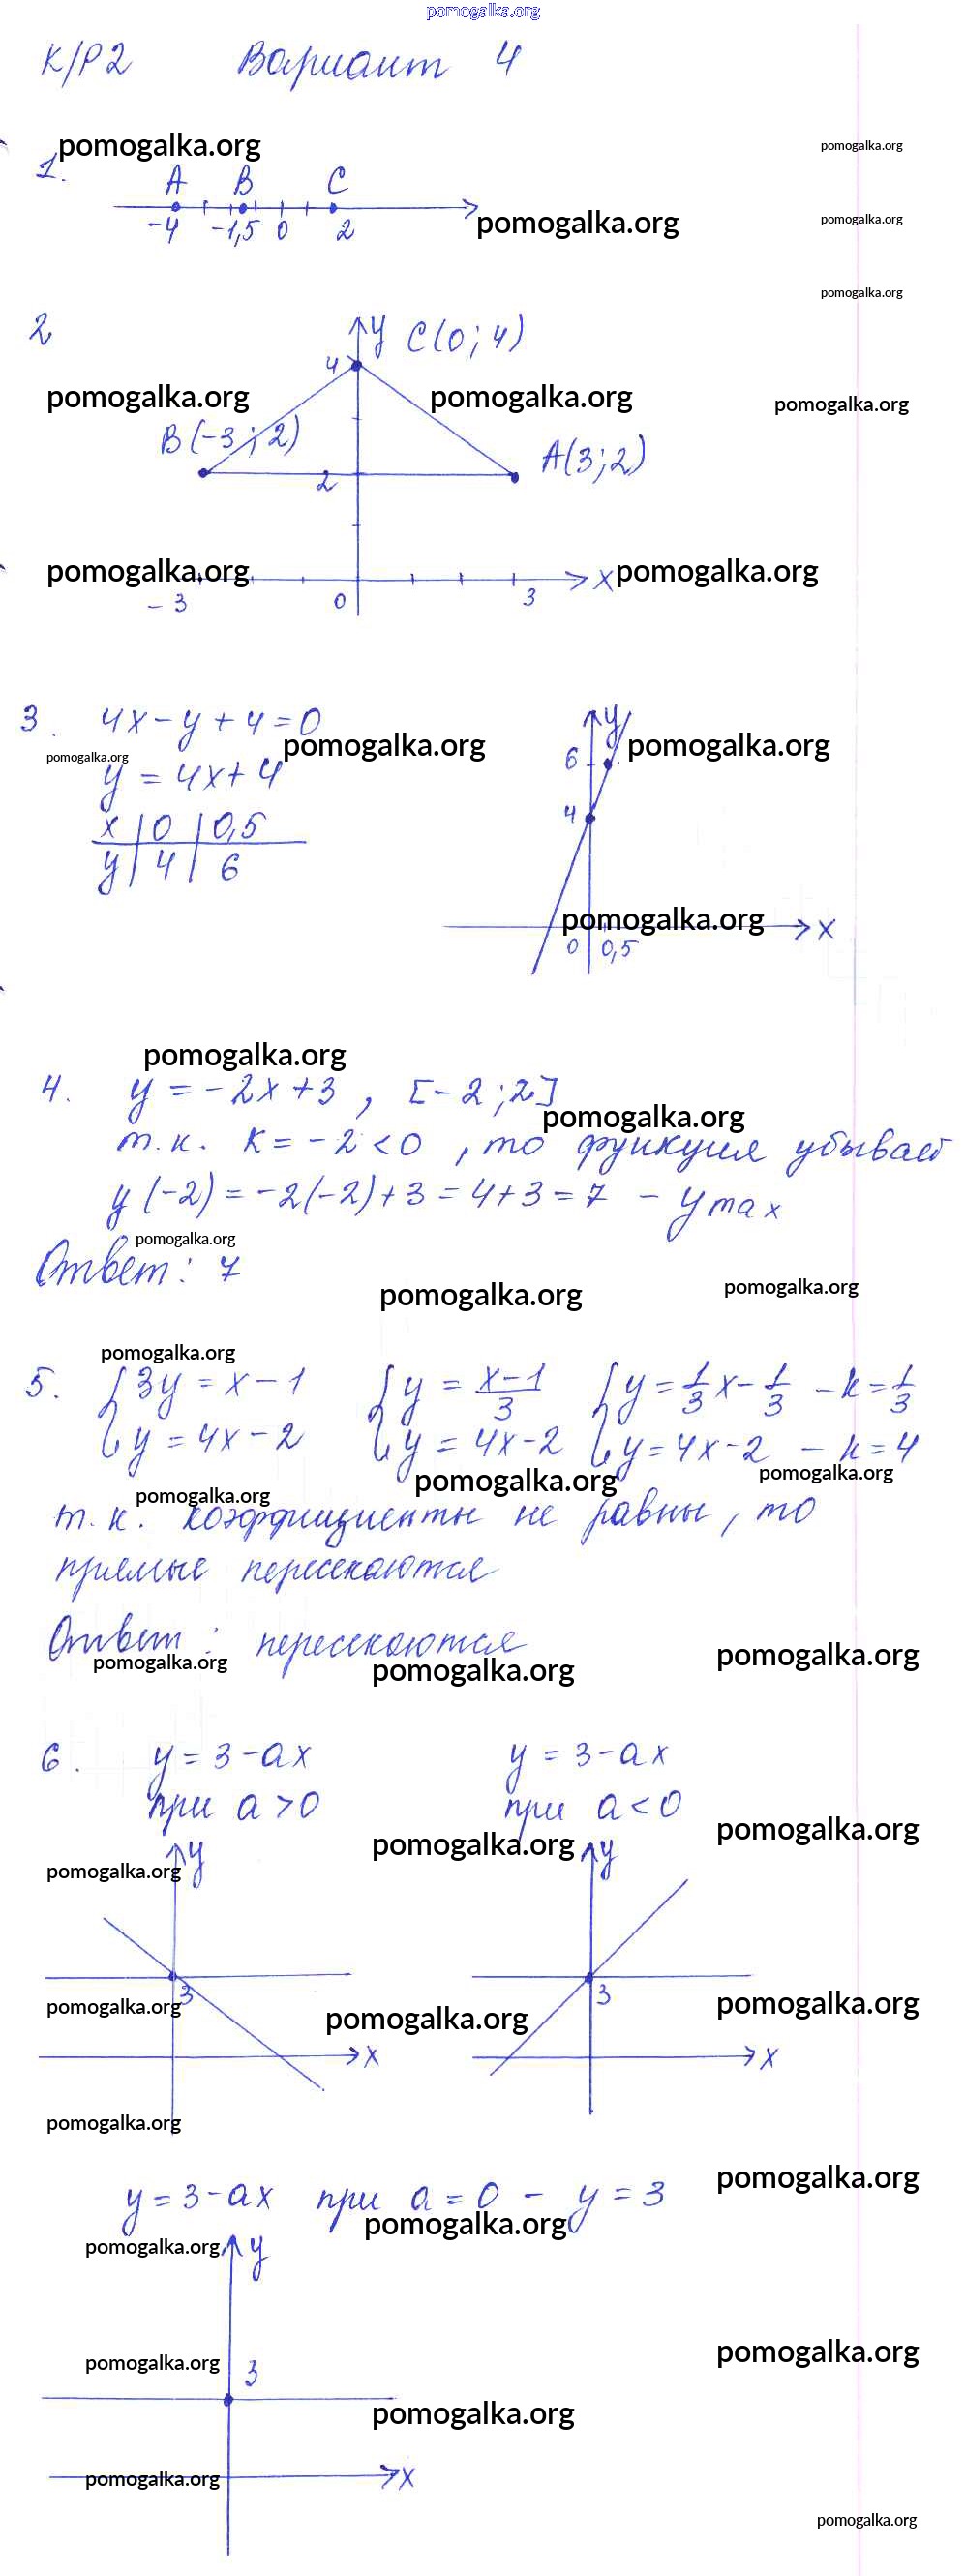 pomogalka.org
К/Р2 Вариант 4
pomogalka.org pomogalka.org
1.
A B C
-4 -1,5 0 2
pomogalka.org pomogalka.org
pomogalka.org
2 y C(0; 4)
4
pomogalka.org pomogalka.org pomogalka.org
B(-3; 2) A(3; 2)
2
pomogalka.org x pomogalka.org
-3 0 3
3. 4x - y + 4 = 0 y
pomogalka.org pomogalka.org
pomogalka.org 6
y = 4x + 4
x | 0 | 0,5 4
y | 4 | 6
pomogalka.org x
0 0,5
pomogalka.org
4. y = -2x + 3, [-2; 2]
pomogalka.org
т.к. k = -2 < 0, то функция убывает
y(-2) = -2(-2) + 3 = 4 + 3 = 7 - y max
pomogalka.org
Ответ: 7
pomogalka.org pomogalka.org
pomogalka.org
5. { 3y = x - 1 { y = x-1/3 { y = 1/3 x - 1/3 - k = 1/3
y = 4x - 2 y = 4x - 2 y = 4x - 2 - k = 4
pomogalka.org pomogalka.org
pomogalka.org
т.к. коэффициенты не равны, то
прямые пересекаются
Ответ: пересекаются
pomogalka.org pomogalka.org pomogalka.org
6. y = 3 - ax y = 3 - ax
при a > 0 при a < 0
pomogalka.org pomogalka.org
pomogalka.org y y
3 3
pomogalka.org pomogalka.org pomogalka.org
x x
pomogalka.org
pomogalka.org
y = 3 - ax при a = 0 - y = 3
pomogalka.org
pomogalka.org y
pomogalka.org
pomogalka.org 3
pomogalka.org
pomogalka.org x
pomogalka.org